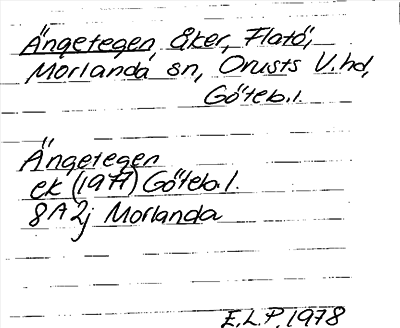 Ängetegen, Åker, Flatö,
Morlanda sn, Orusts V. hd,
Göteb. l.
Ängetegen
ek (1977) Göteb. l.
8A 2j Morlanda
E.L.P. 1978